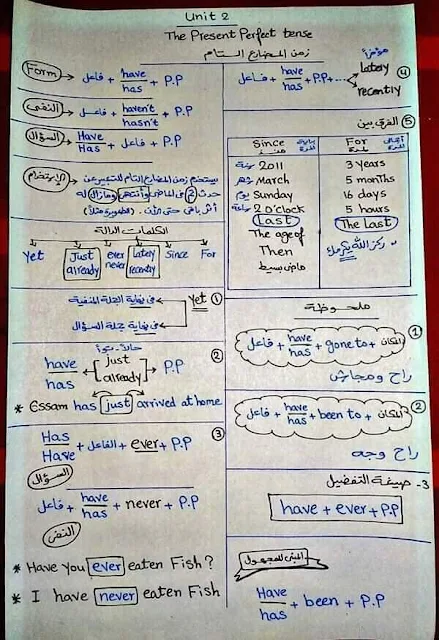 Unit 2
The Present Perfect tense
زمن المضارع التام
Form → فاعل + have/has + P.P
النفى → فاعل + haven't/hasn't + P.P
السؤال → Have/Has + فاعل + P.P
الإستخدام → يستخدم زمن المضارع التام للتعبير عن
حدث تم فى الماضى وانتهى ومازال له
أثر باقى حتى الآن.
الكلمات الدالة
Yet Just already ever never Lately recently Since For
① yet فى نهاية الجملة المنفية
فى نهاية جملة السؤال
②
have/has + [just already] + P.P
* Essam has just arrived at home
③
Has/Have + الفاعل + ever + P.P
السؤال
فاعل + have/has + never + P.P
النفى
* Have you ever eaten Fish?
* I have never eaten Fish
④ مؤخراً
فاعل + have/has + P.P + ..... Lately
recently
⑤ الفرق بين
Since منذ بداية المدة
For لمدة
سنة 2011
شهر March
يوم Sunday
ساعة 2 o'clock
Last
The age of
Then
ماضى بسيط
3 years
5 months
16 days
5 hours
The Last
ركز الله يكرمك
ملحوظة
①
فاعل + have/has + gone to + المكان
راح ومجاش
②
فاعل + have/has + been to + المكان
راح وجه
3- صيغة التفضيل
have + ever + P.P
المبنى للمجهول
Have/has + been + P.P